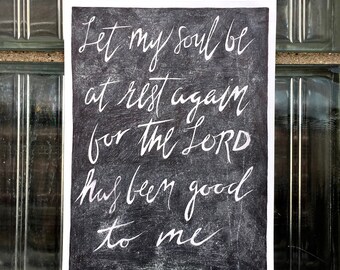 Let my soul be
at rest again
for the LORD
has been good
to me